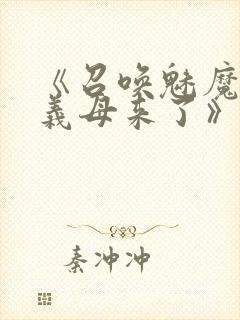 《召唤魅魔
義母来了》
秦冲冲